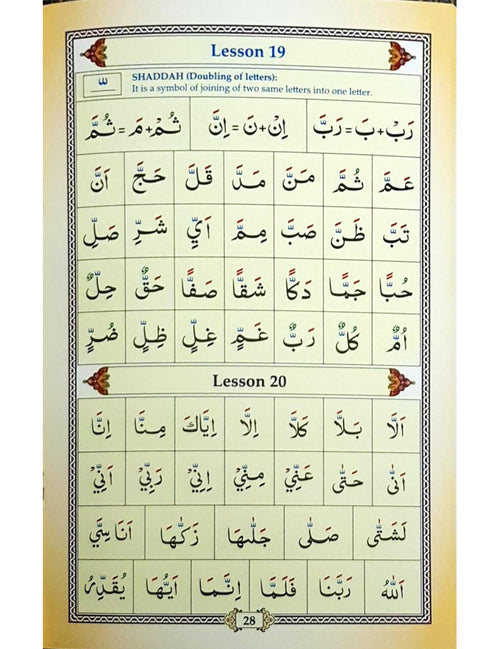 Lesson 19
SHADDAH (Doubling of letters):
It is a symbol of joining of two same letters into one letter.
رَبْ+بَ=رَبَّ اِنْ+نَ=اِنَّ ثُمْ+مَ=ثُمَّ
عَمَّ ثُمَّ مَنَّ مَدَّ قَلَّ حَجَّ اَنَّ
تَبَّ ظَنَّ صَبَّ مِمَّ اَيِّ شَرِّ صَلِّ
حُبًّا جَمًّا دَكًّا شَقًّا صَفًّا حَقٌّ حِلٌّ
اُمٌّ كُلٌّ رَبٌّ غَمٍّ غِلٍّ ظِلٍّ ضُرٍّ
Lesson 20
اَلَّا بَلَّا كَلَّا اِلَّا اِيَّاكَ مِنَّا اِنَّا
اَنّٰى حَتّٰى عَنِّيْ مِنِّيْ اِنِّيْ رَبِّيْ اَنِّيْ
لَشَتّٰى صَلّٰى جَلّٰىهَا زَكّٰىهَا اَنَاسِيَّ
اَللّٰهُ رَبَّنَا فَلَمَّا اِنَّمَا اَيُّهَا يُقَدِّرُ
28